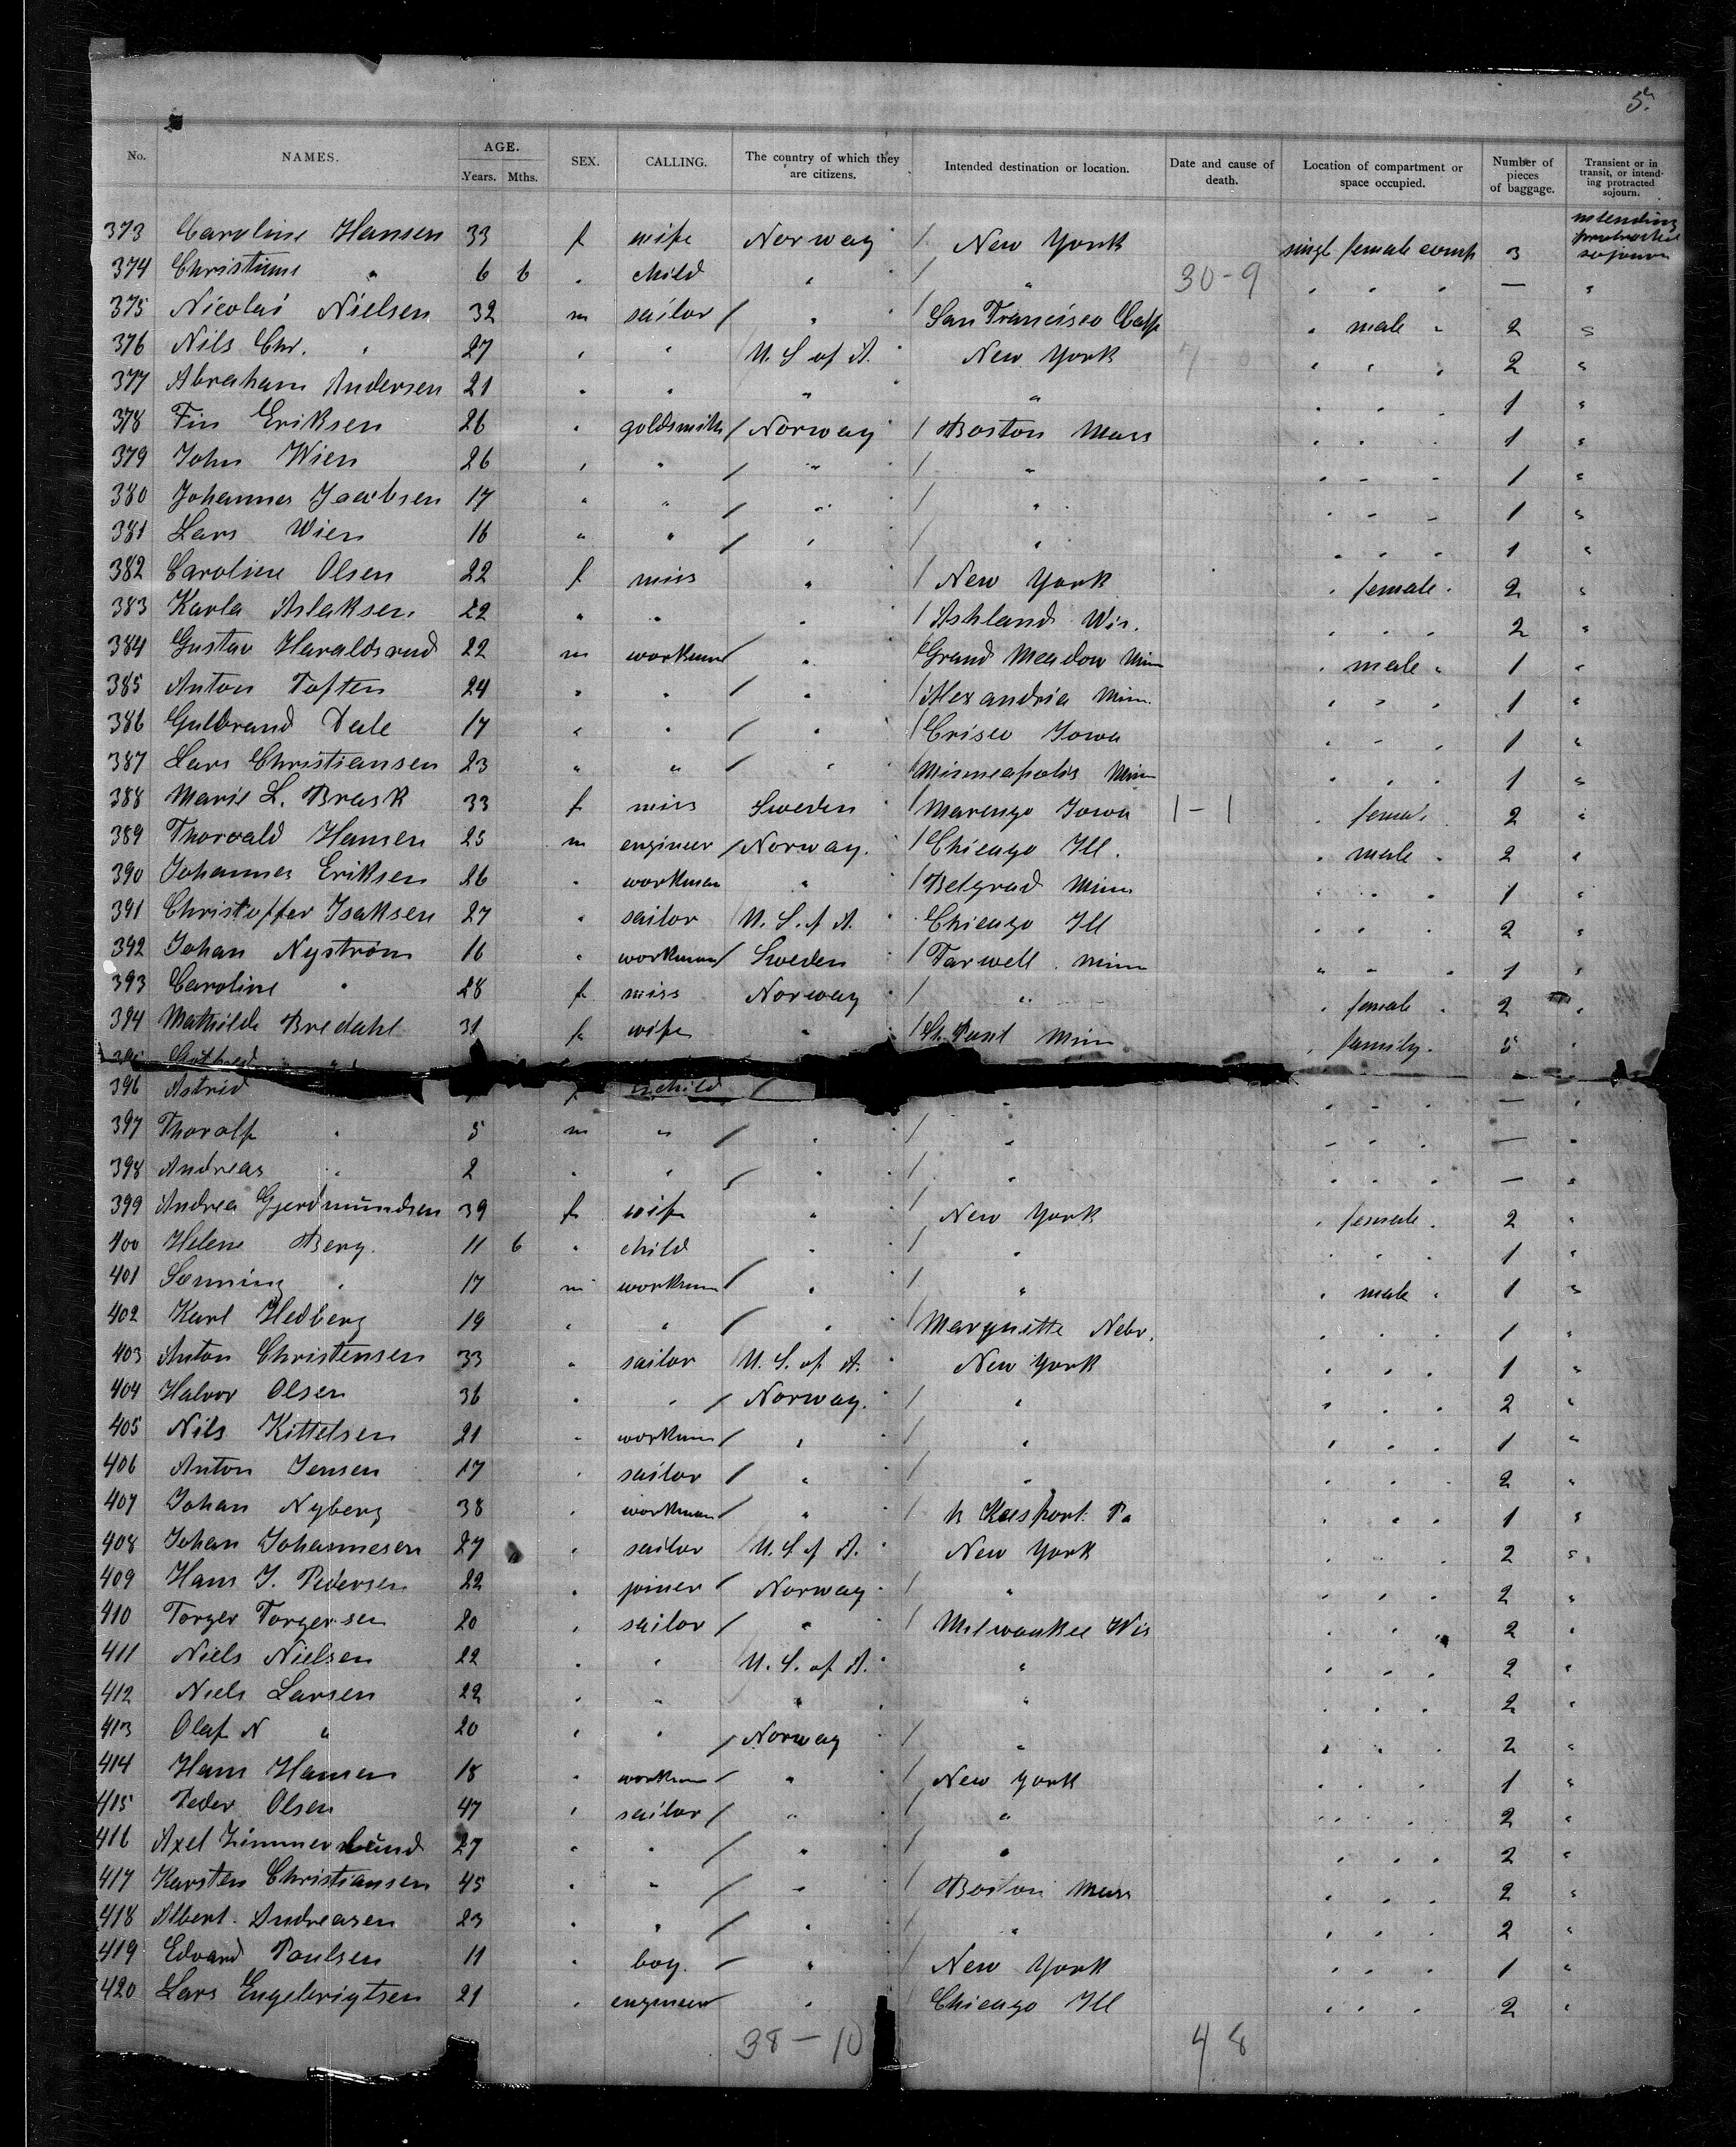 5.
No. NAMES. AGE. Years. Mths. SEX. CALLING. The country of which they are citizens. Intended destination or location. Date and cause of death. Location of compartment or space occupied. Number of pieces of baggage. Transient or in transit, or intending protracted sojourn.
373 Caroline Hansen 33 f wife Norway / New York singl female comp 3 intending protracted sojourn
374 Christiane " 6 6 " child " / " 30-9 " " " — "
375 Nicolai Nielsen 32 m sailor / " / San Francisco Calf " male " 2 "
376 Nils Chr. " 27 " " U. S of A. New York " " " 2 "
377 Abraham Andersen 21 " " " " " " " 1 "
378 Fin Eriksen 26 " goldsmith / Norway / Boston Mass " " " 1 "
379 John Wien 26 " " / " / " " " " 1 "
380 Johannes Jacobsen 17 " " / " / " " " " 1 "
381 Lars Wien 16 " " / " / " " " " 1 "
382 Caroline Olsen 22 f miss " / New York " female " 2 "
383 Karla Aslaksen 22 " " " / Ashland Wis. " " " 2 "
384 Gustav Haraldsrud 22 m workman / " / Grand Meadow Minn " male " 1 "
385 Anton Toften 24 " " / " / Alexandria Minn. " " " 1 "
386 Gulbrand Dale 17 " " / " / Crisco Iowa " " " 1 "
387 Lars Christiansen 23 " " / " / Minneapolis Minn " " " 1 "
388 Marie L. Brask 33 f miss Sweden / Marengo Iowa 1-1 " female 2 "
389 Thorvald Hansen 25 m engineer / Norway. / Chicago Ill. " male " 2 "
390 Johannes Eriksen 26 " workman " / Belgrad Minn " " " 1 "
391 Christoffer Isaksen 27 " sailor U. S. of A. Chicago Ill " " " 2 "
392 Johan Nystrøm 16 " workman / Sweden / Farwell Minn " " " 1 "
393 Caroline " 28 f miss Norway / " " female " 2 "
394 Mathilde Bredahl 31 f wife " / St. Paul Minn " family. 5 "
396 Astrid f child / " " " " — "
397 Thoralf " 5 m " / " / " " " " — "
398 Andreas " 2 " " / " / " " " " — "
399 Andrea Gjerdmundsen 39 f wife " / New York " female. 2 "
400 Helene Berg. 11 6 " child " / " " " " 1 "
401 Sønning " 17 m workman / " / " " male " 1 "
402 Karl Hedberg 19 " " / " / Marquette Nebr. " " " 1 "
403 Anton Christensen 33 " sailor U. S. of A. New York " " " 1 "
404 Halvor Olsen 36 " " / Norway. / " " " " 2 "
405 Nils Kittelsen 21 " workman / " / " " " " 1 "
406 Anton Jensen 17 " sailor / " / " " " " 2 "
407 Johan Nyberg 38 " workman / " / Keesport Pa " " " 1 "
408 Johan Johannesen 27 " sailor U. S of A. New York " " " 2 "
409 Hans J. Pedersen 22 " joiner / Norway / " " " " 2 "
410 Torger Torgersen 20 " sailor / " / Milwaukee Wis " " " 2 "
411 Niels Nielsen 22 " " U. S. of A. " " " " 2 "
412 Niels Larsen 22 " " " " " " " 2 "
413 Olaf N " 20 " " / Norway / " " " " 2 "
414 Hans Hansen 18 " workman / " / New York " " " 1 "
415 Peder Olsen 47 " sailor / " / " " " " 2 "
416 Axel Zimmerlund 27 " " / " / " " " " 2 "
417 Karsten Christiansen 45 " " / " / Boston Mass " " " 2 "
418 Albert Andreasen 23 " " / " / " " " " 2 "
419 Edvard Paulsen 11 " boy. / " / New York " " " 1 "
420 Lars Engebrigtsen 21 " engineer " / Chicago Ill " " " 2 "
38-10 48